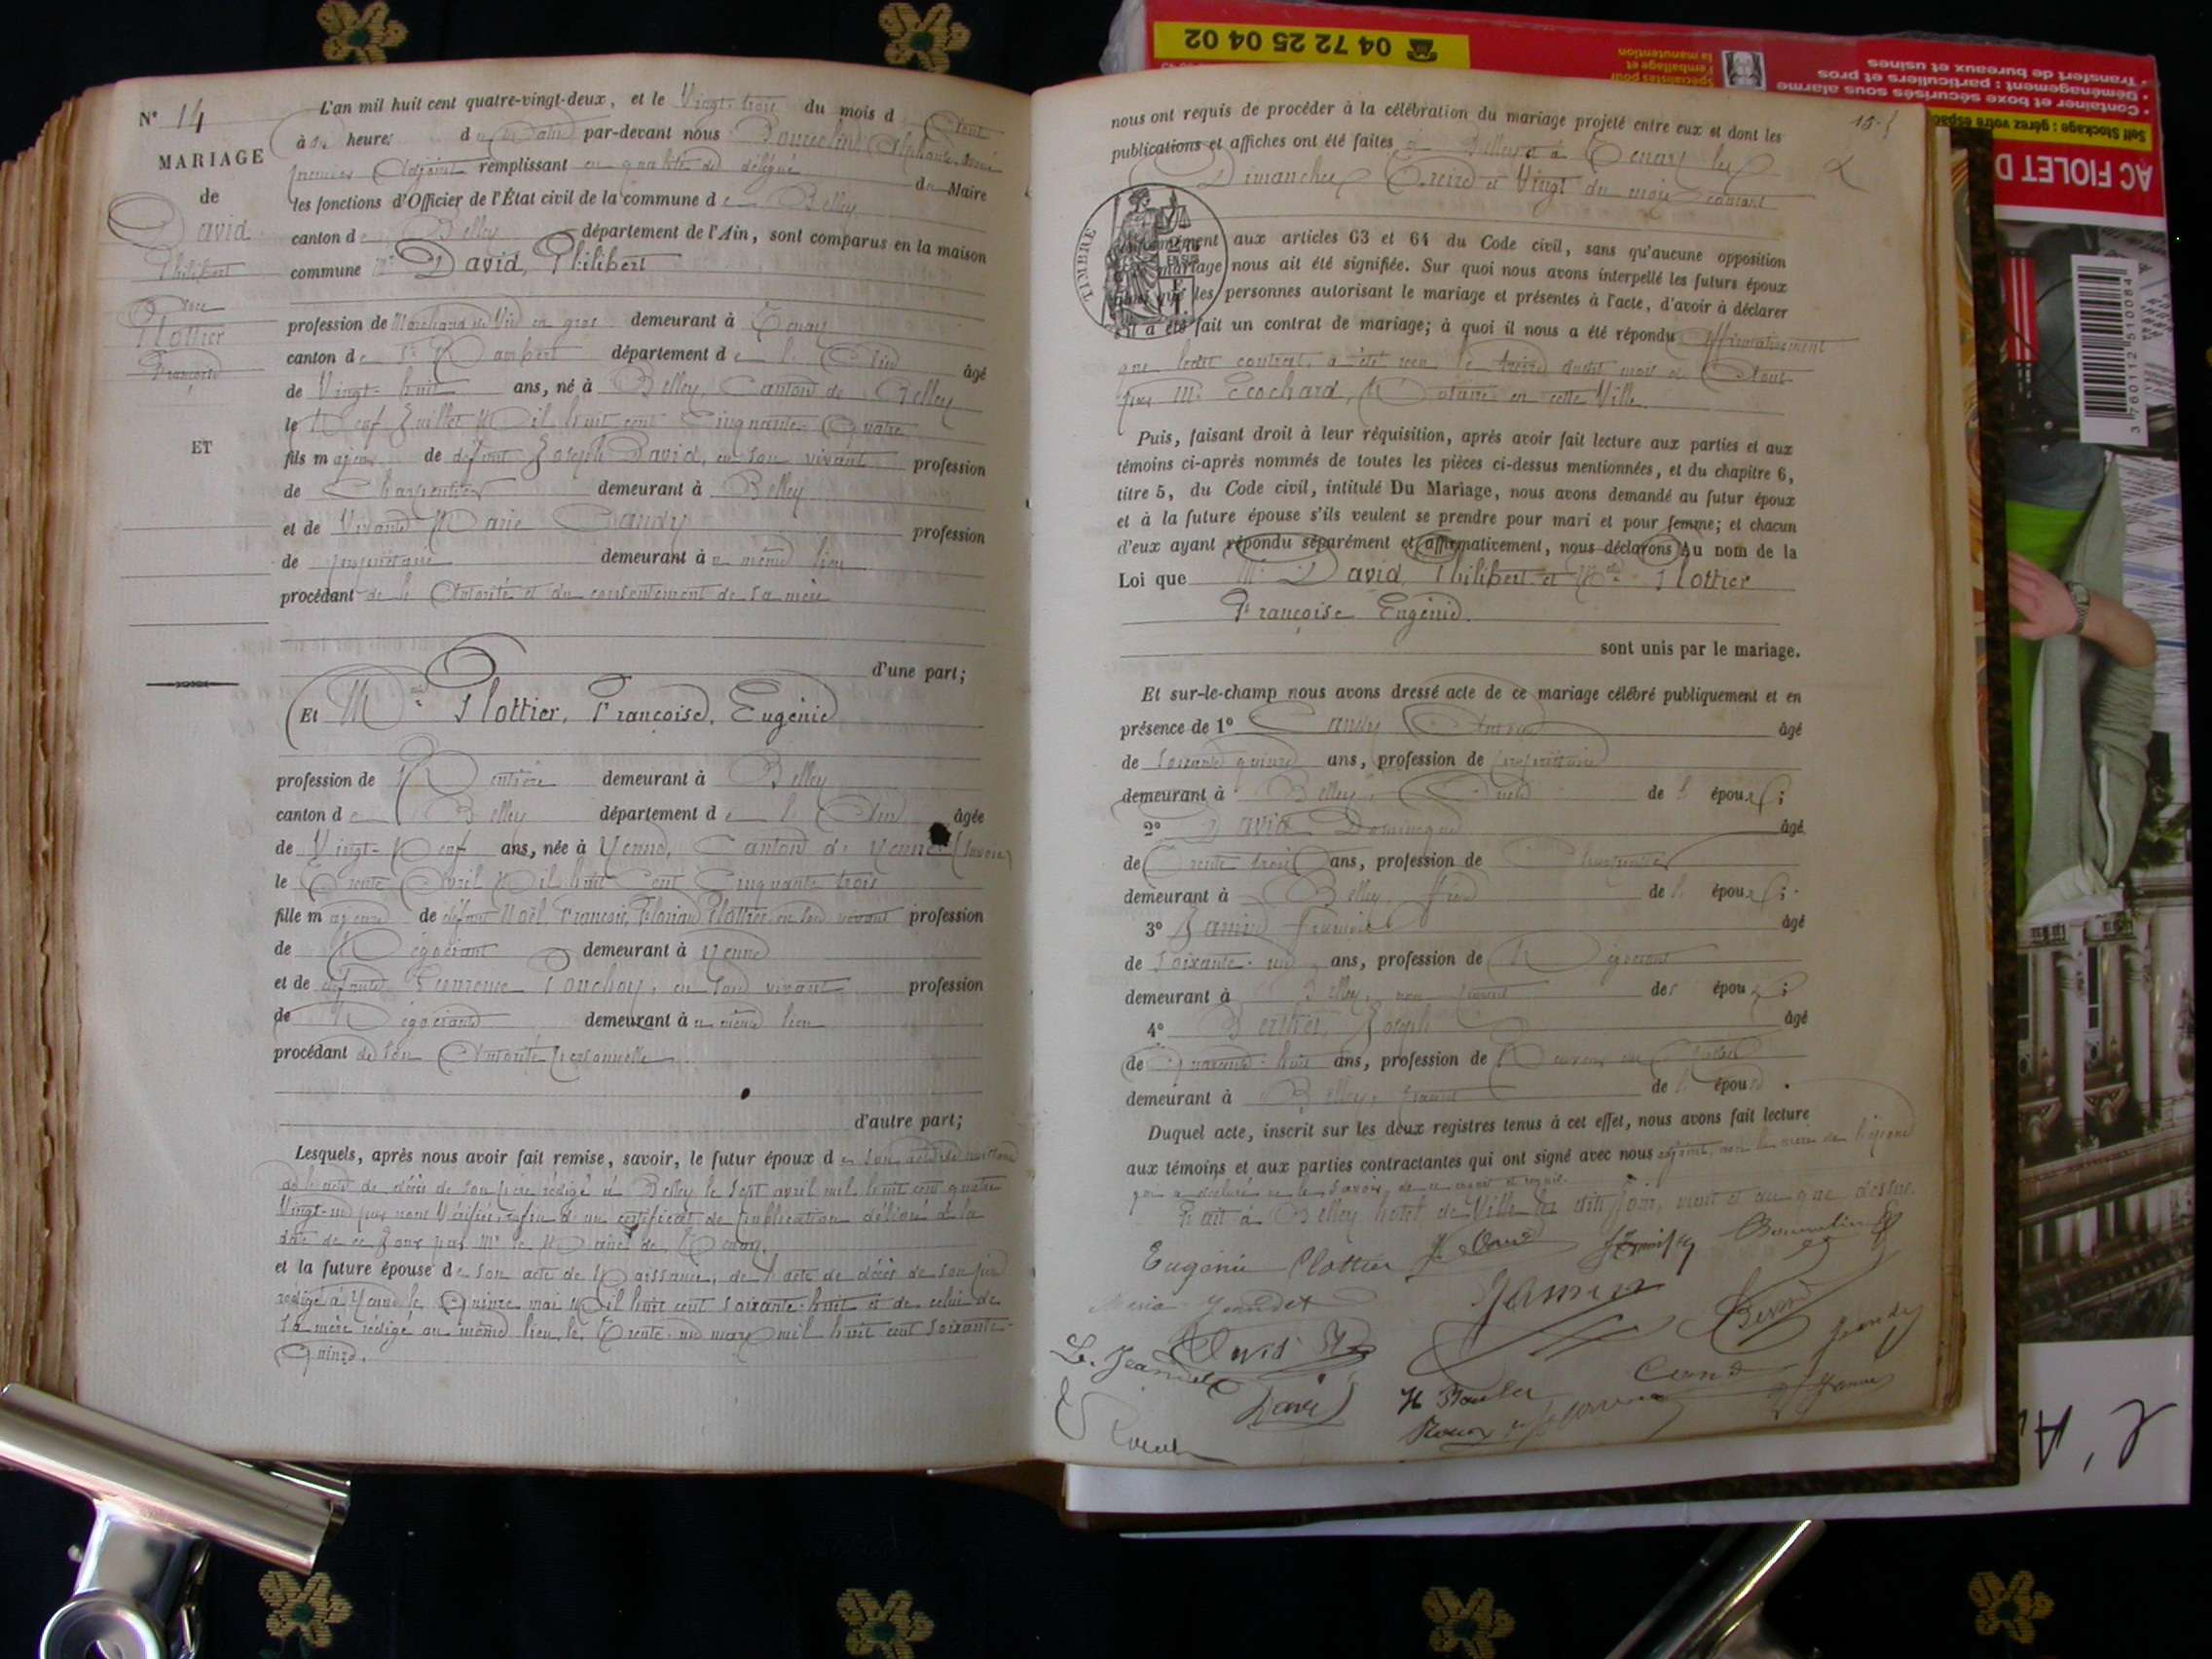 N° 14
MARIAGE
de
David
Philibert
Avec
Plottier
Françoise
ET
L'an mil huit cent quatre-vingt-deux, et le Vingt-trois du mois d'Août
à dix heures du matin par-devant nous
premier Adjoint remplissant en qualité de délégué du Maire
les fonctions d'Officier de l'État civil de la commune de Belley
canton de Belley département de l'Ain, sont comparus en la maison
commune Mr David, Philibert
profession de Marchand de Vin en gros demeurant à Tenay
canton de St Rambert département de l'Ain âgé
de Vingt-huit ans, né à Belley, Canton de Belley
le Neuf Juillet Mil huit cent Cinquante Quatre
fils majeur de défunt Joseph David, en son vivant profession
de Charpentier demeurant à Belley
et de Vivante Marie Candy profession
de propriétaire demeurant à u même lieu
procédant de l'Autorité et du consentement de sa mère
d'une part;
Et Melle Plottier, Françoise, Eugénie
profession de Rentière demeurant à Belley
canton de Belley département de l'Ain âgée
de Vingt-Neuf ans, née à Yenne, Canton de Yenne (Savoie)
le Trente Avril Mil huit Cent Cinquante trois
fille majeure de défunt Noël, François, Florian Plottier, en son vivant profession
de Négociant demeurant à Yenne
et de défunte Laurence Ponchoy, en son vivant profession
de Négociante demeurant à u même lieu
procédant de son Autorité personnelle
d'autre part;
Lesquels, après nous avoir fait remise, savoir, le futur époux de son acte de naissance
de l'acte de décès de son père rédigé à Belley le sept avril mil huit cent quatre
Vingt-un par nous Vérifiés, enfin d'un certificat de publication délivré à la
date de ce Jour par Mr le Maire de Tenay.
et la future épouse de son acte de Naissance, de l'acte de décès de son père
rédigé à Yenne le Quinze mai Mil huit cent soixante-huit et de celui de
sa mère rédigé au même lieu, le Trente-un mars mil huit cent soixante-
Quinze.
15
nous ont requis de procéder à la célébration du mariage projeté entre eux et dont les
publications et affiches ont été faites à Belley et à Tenay les
Dimanches Treize et Vingt du mois courant
TIMBRE
conformément aux articles 63 et 64 du Code civil, sans qu'aucune opposition
mariage nous ait été signifiée. Sur quoi nous avons interpellé les futurs époux
ainsi que les personnes autorisant le mariage et présentes à l'acte, d'avoir à déclarer
s'il a été fait un contrat de mariage; à quoi il nous a été répondu Affirmativement
que ledit contrat a été reçu le treize dudit mois d'Août
par Me Ecochard, Notaire en cette Ville.
Puis, faisant droit à leur réquisition, après avoir fait lecture aux parties et aux
témoins ci-après nommés de toutes les pièces ci-dessus mentionnées, et du chapitre 6,
titre 5, du Code civil, intitulé Du Mariage, nous avons demandé au futur époux
et à la future épouse s'ils veulent se prendre pour mari et pour femme; et chacun
d'eux ayant répondu séparément et affirmativement, nous déclarons Au nom de la
Loi que Mr David, Philibert et Melle Plottier
Françoise Eugénie.
sont unis par le mariage.
Et sur-le-champ nous avons dressé acte de ce mariage célébré publiquement et en
présence de 1° Candy âgé
de soixante quinze ans, profession de propriétaire
demeurant à Belley, Oncle de l'époux;
2° David Dominique âgé
de Trente trois ans, profession de Charpentier
demeurant à Belley, frère de l'époux;
3° Jamin François âgé
de soixante-un ans, profession de Négociant
demeurant à Belley, non parent des époux;
4° Berthet, Joseph âgé
de Quarante-huit ans, profession de
demeurant à Belley, de l'épouse.
Duquel acte, inscrit sur les deux registres tenus à cet effet, nous avons fait lecture
aux témoins et aux parties contractantes qui ont signé avec nous adjoint, non la mère de l'époux
qui a déclaré ne le savoir, de ce enquis et requis.
Fait à Belley hotel de Ville les dits jour, mois et an que dessus.
Eugénie Plottier
Maria Jeandet
Jamin
L. Jeandet
David
David
Cand
04 72 25 04 02
AC FIOLET D
Self Stockage : gérez votre espace
• Container et boxe sécurisés sous alarme
• Déménagement : particuliers et pros
• Transfert de bureaux et usines
spécialistes pour
l'emballage et
la manutention
3 760112 510064